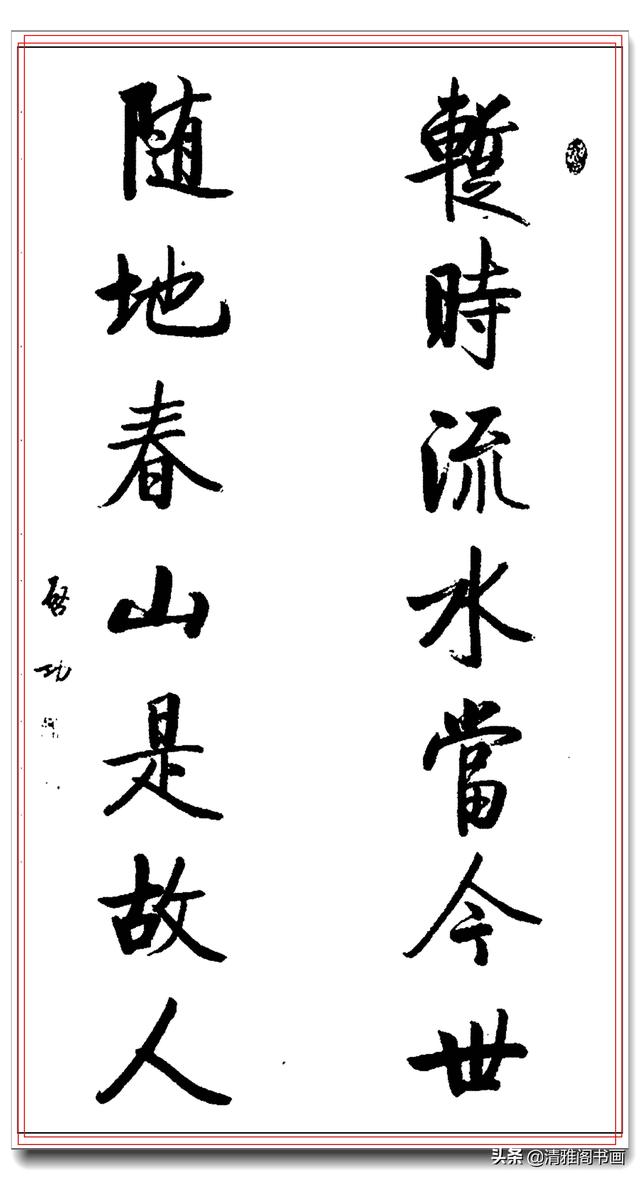 暫時流水當今世
随地春山是故人
啓功
头条 @清雅阁书画